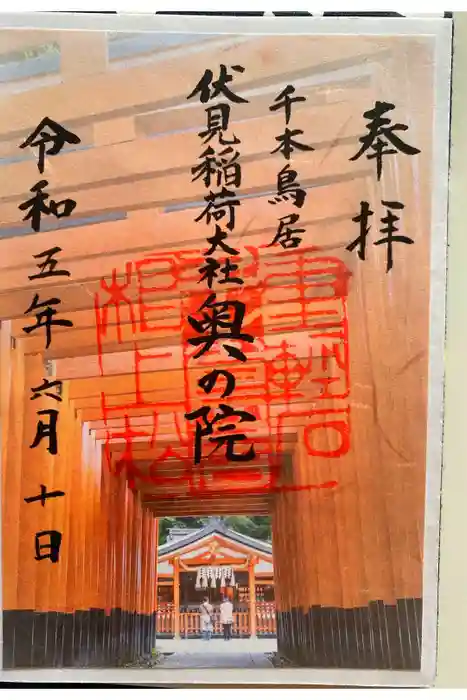 奉拝
千本鳥居
伏見稲荷大社奥の院
令和五年六月十日